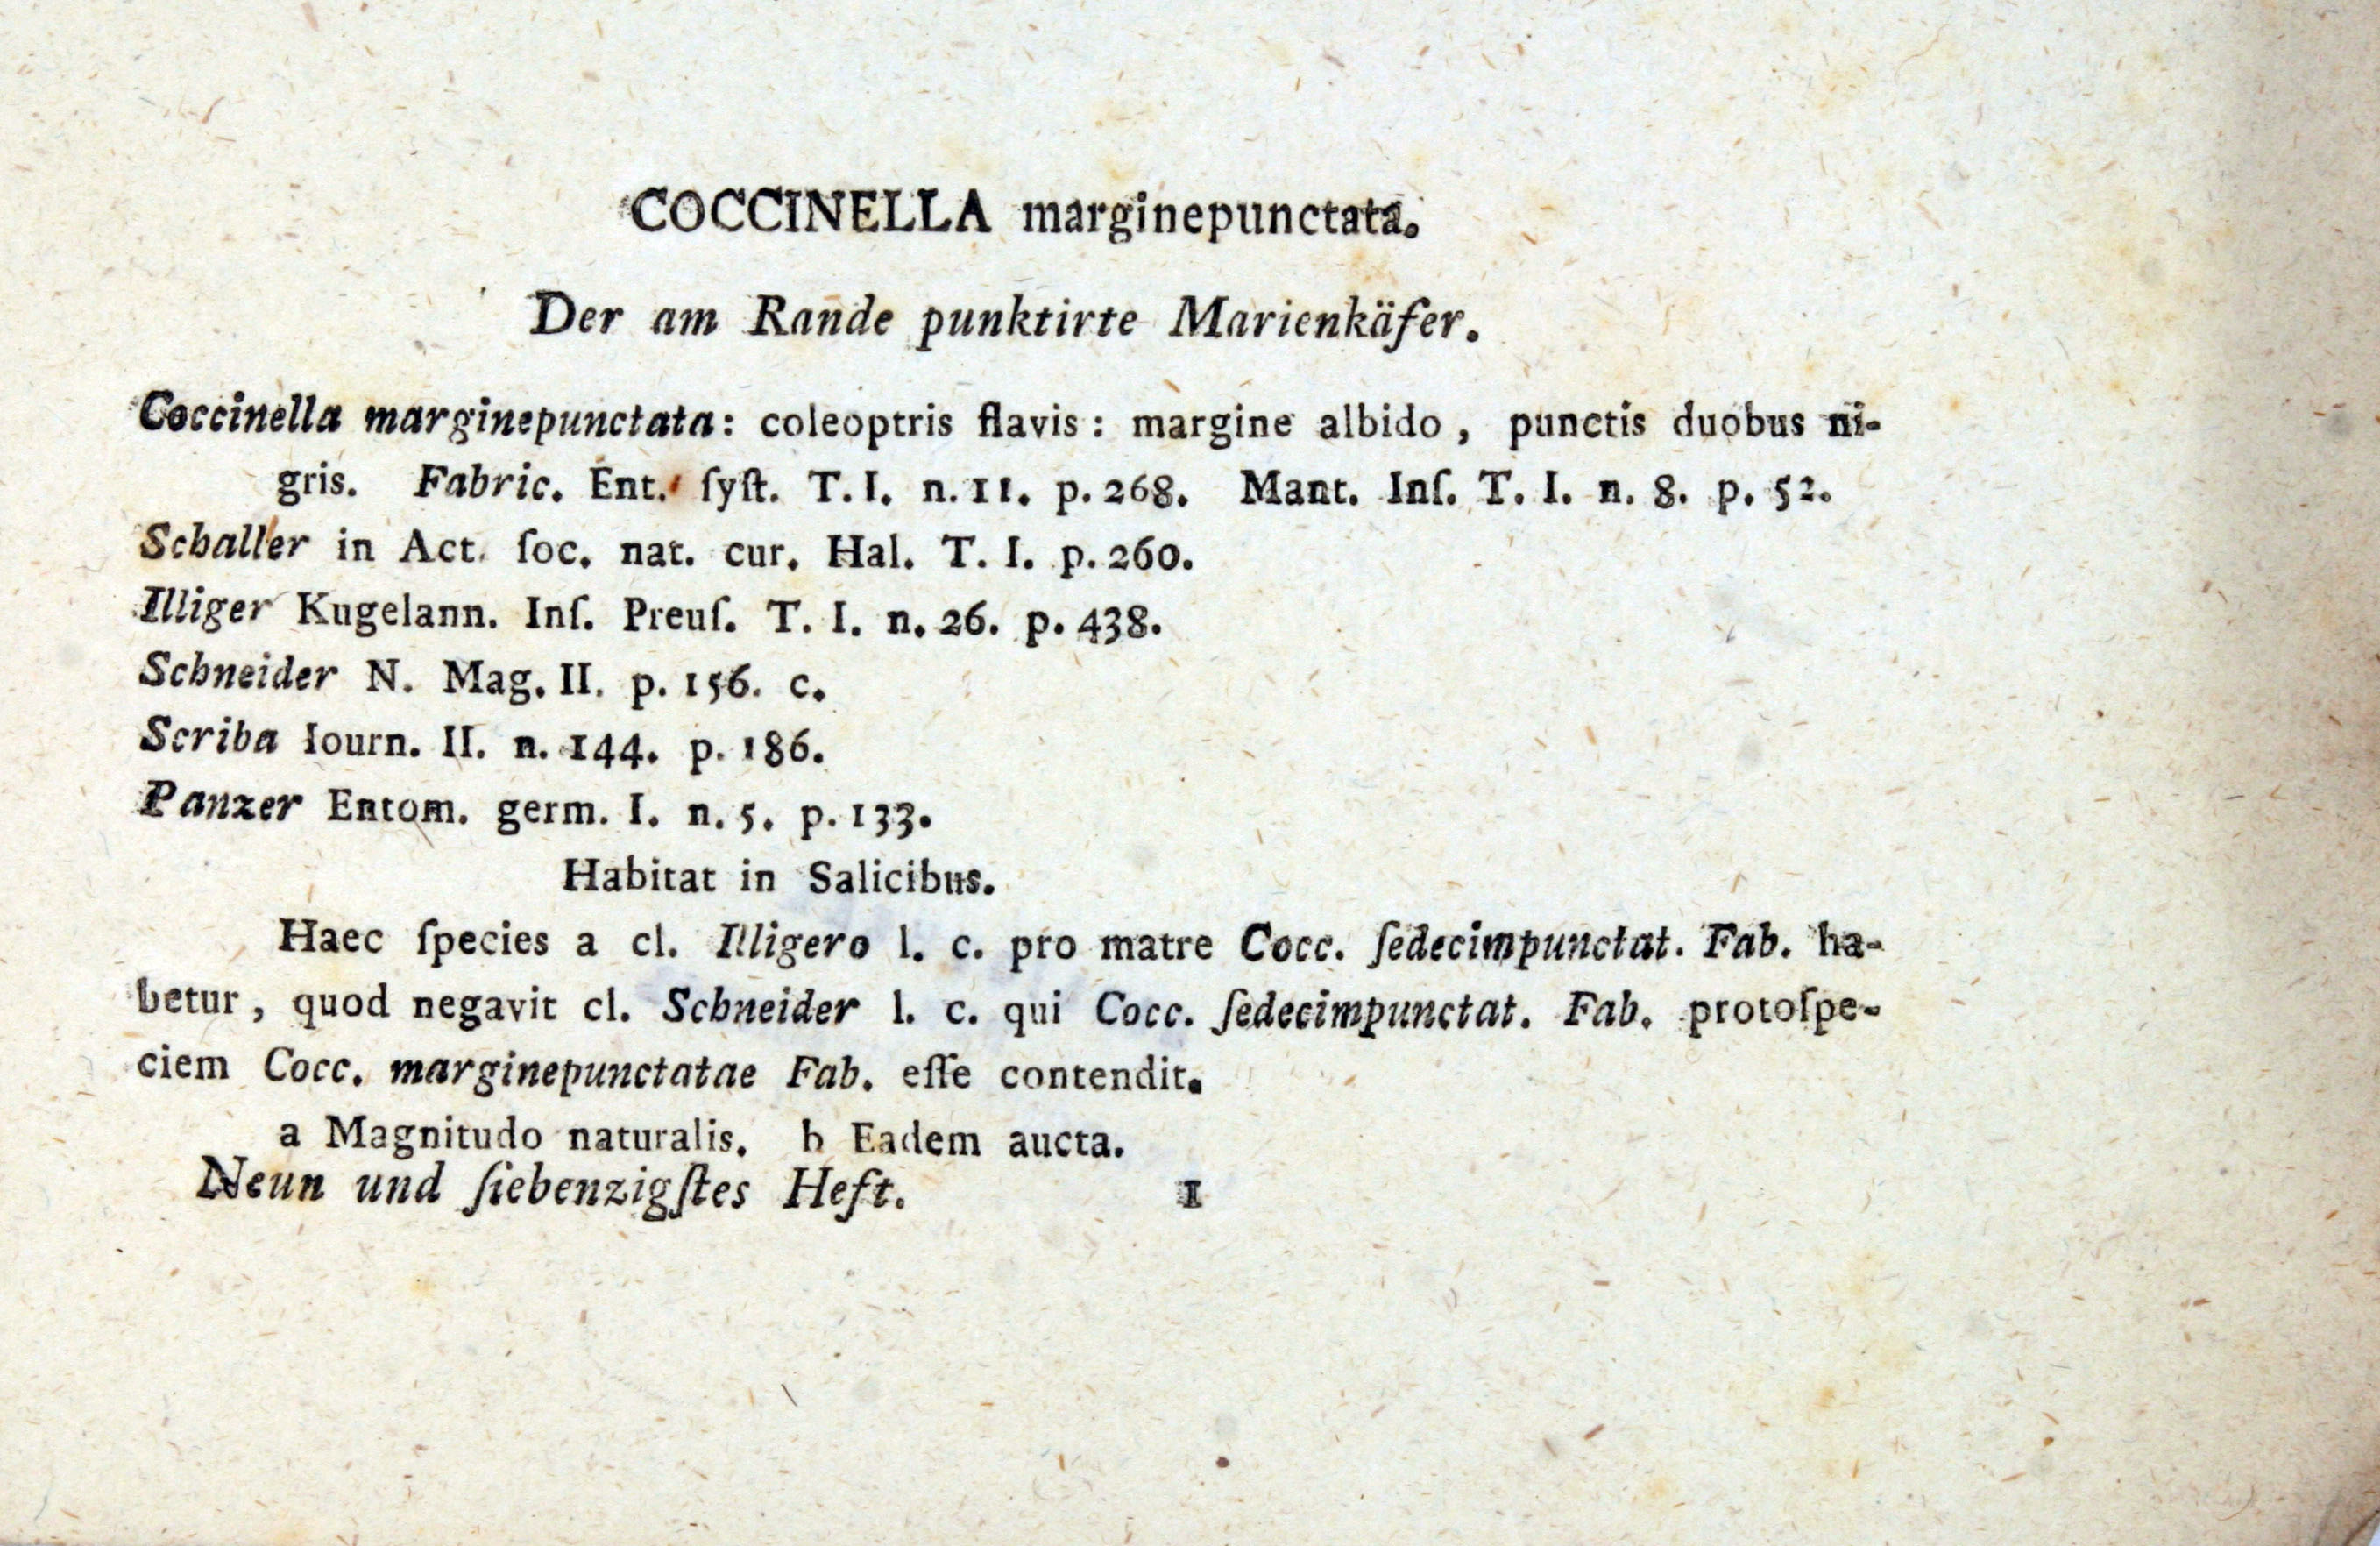 COCCINELLA marginepunctata.
Der am Rande punktirte Marienkäfer.
Coccinella marginepunctata: coleoptris flavis: margine albido, punctis duobus ni-
gris. Fabric. Ent. ſyſt. T. I. n. 11. p. 268. Mant. Inſ. T. I. n. 8. p. 52.
Schaller in Act. ſoc. nat. cur. Hal. T. I. p. 260.
Illiger Kugelann. Inſ. Preuſ. T. I. n. 26. p. 438.
Schneider N. Mag. II. p. 156. c.
Scriba Iourn. II. n. 144. p. 186.
Panzer Entom. germ. I. n. 5. p. 133.
Habitat in Salicibus.
Haec ſpecies a cl. Illigero l. c. pro matre Cocc. ſedecimpunctat. Fab. ha-
betur, quod negavit cl. Schneider l. c. qui Cocc. ſedecimpunctat. Fab. protoſpe-
ciem Cocc. marginepunctatae Fab. eſſe contendit.
a Magnitudo naturalis. b Eadem aucta.
Neun und ſiebenzigſtes Heft. 1